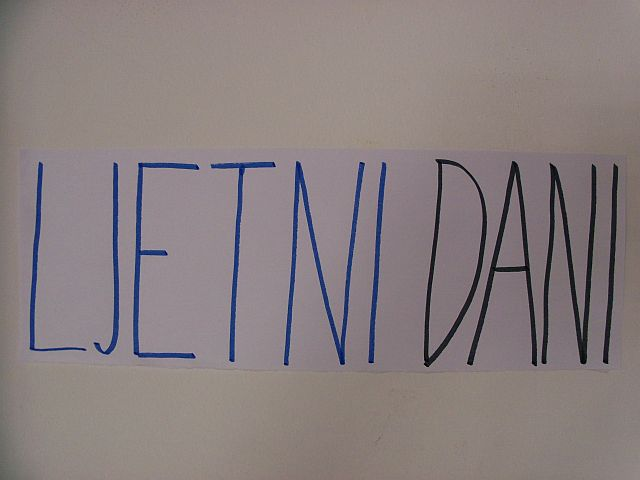 LJETNI DANI